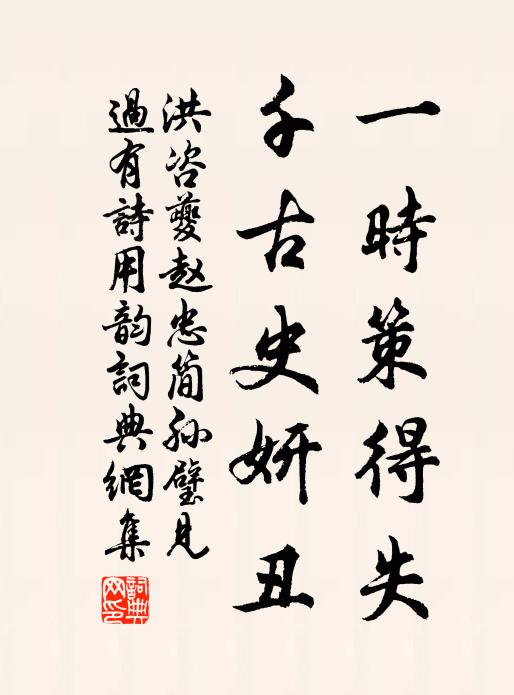 一時策得失
千古史妍丑
洪咨夔赵忠简孙壁見
過有詩用韵詞典網集
詞典网印